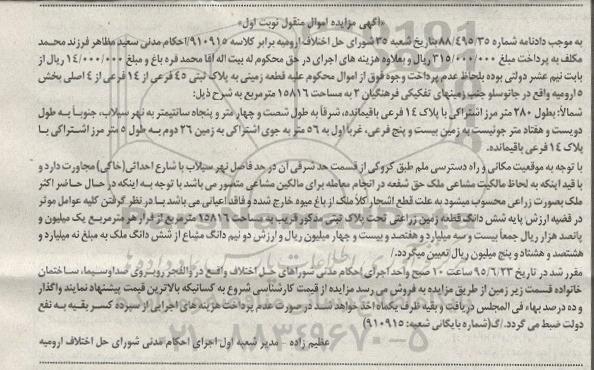 «آگهی مزایده اموال منقول نوبت اول»
به موجب دادنامه شماره ۸۸/۴۹۵/۳۵ بتاریخ شعبه ۳۵ شورای حل اختلاف ارومیه برابر کلاسه ۹۱۰۹۱۵/احکام مدنی سعید مظاهر فرزند محمد
مکلف به پرداخت مبلغ ۳۱۵/۰۰۰/۰۰۰ ریال و بعلاوه هزینه های اجرای در حق محکوم له بیت اله آقا محمد قره باغ و مبلغ ۱۴/۰۰۰/۰۰۰ ریال از
بابت نیم عشر دولتی بوده بلحاظ عدم پرداخت وجوه فوق از اموال محکوم علیه قطعه زمینی به پلاک ثبتی ۴۵ فرعی از ۱۴ فرعی از ۴ اصلی بخش
۵ ارومیه واقع در جانوسلو جنب زمینهای تفکیکی فرهنگیان ۲ به مساحت ۱۵۸۱۶ مترمربع به شرح ذیل:
شمالاً: بطول ۲۸۰ متر مرز اشتراکی با پلاک ۱۴ فرعی باقیمانده، شرقاً به طول شصت و چهار متر و پنجاه سانتیمتر به نهر سیلاب، جنوباً به طول
دویست و هفتاد متر جوئیست به زمین بیست و پنج فرعی، غرباً اول به ۵۶ متر به جوی اشتراکی به زمین ۲۶ دوم به طول ۵ متر مرز اشتراکی با
پلاک ۱۴ فرعی باقیمانده.
با توجه به موقعیت مکانی و راه دسترسی ملم طبق کروکی از قسمت حد شرقی آن در حد فاصل نهر سیلاب با شارع احداثی(خاکی) مجاورت دارد و
با قید اینکه به لحاظ مالکیت مشاعی ملک حق شفعه در انجام معامله برای مالکین مشاعی متصور می باشد با توجه به اینکه در حال حاضر اکثر
ملک بصورت زراعی محسوب میشود به علت قطع اشجار کلاً ملک از باغ میوه خارج شده و فاقد اعیانی می باشد با در نظر گرفتن کلیه عوامل موثر
در قضیه ارزش پایه شش دانگ قطعه زمین زراعتی تحت پلاک ثبتی مذکور قریب به مساحت ۱۵۸۱۶ مترمربع از قرار هر مترمربع یک میلیون و
پانصد هزار ریال جمعاً بیست و سه میلیارد و هفتصد و بیست و چهار میلیون ریال و ارزش دو نیم دانگ مشاع از شش دانگ ملک به مبلغ نه میلیارد و
هشتصد و هشتاد و پنج میلیون ریال تعیین میگردد./
مقرر شد در تاریخ ۹۵/۶/۲۳ ساعت ۱۰ صبح واحد اجرای احکام مدنی شوراهای حل اختلاف واقع در والفجر روبروی صداوسیما، ساختمان
خانواده قسمت زیر زمین از طریق مزایده به فروش می رسد مزایده از قیمت کارشناسی شروع به کسانیکه بالاترین قیمت پیشنهاد نمایند واگذار
و ده درصد بهاء فی المجلس دریافت و بقیه ظرف یکماه اخذ خواهد شد در صورت عدم پرداخت هزینه های اجرایی از سپرده کسر بقیه به نفع
دولت ضبط می گردد./گ(شماره بایگانی شعبه: ۹۱۰۹۱۵)
عظیم زاده - مدیر شعبه اول اجرای احکام مدنی شورای حل اختلاف ارومیه
۰۲۱-۸۸۳۴۹۶۷۰-۵